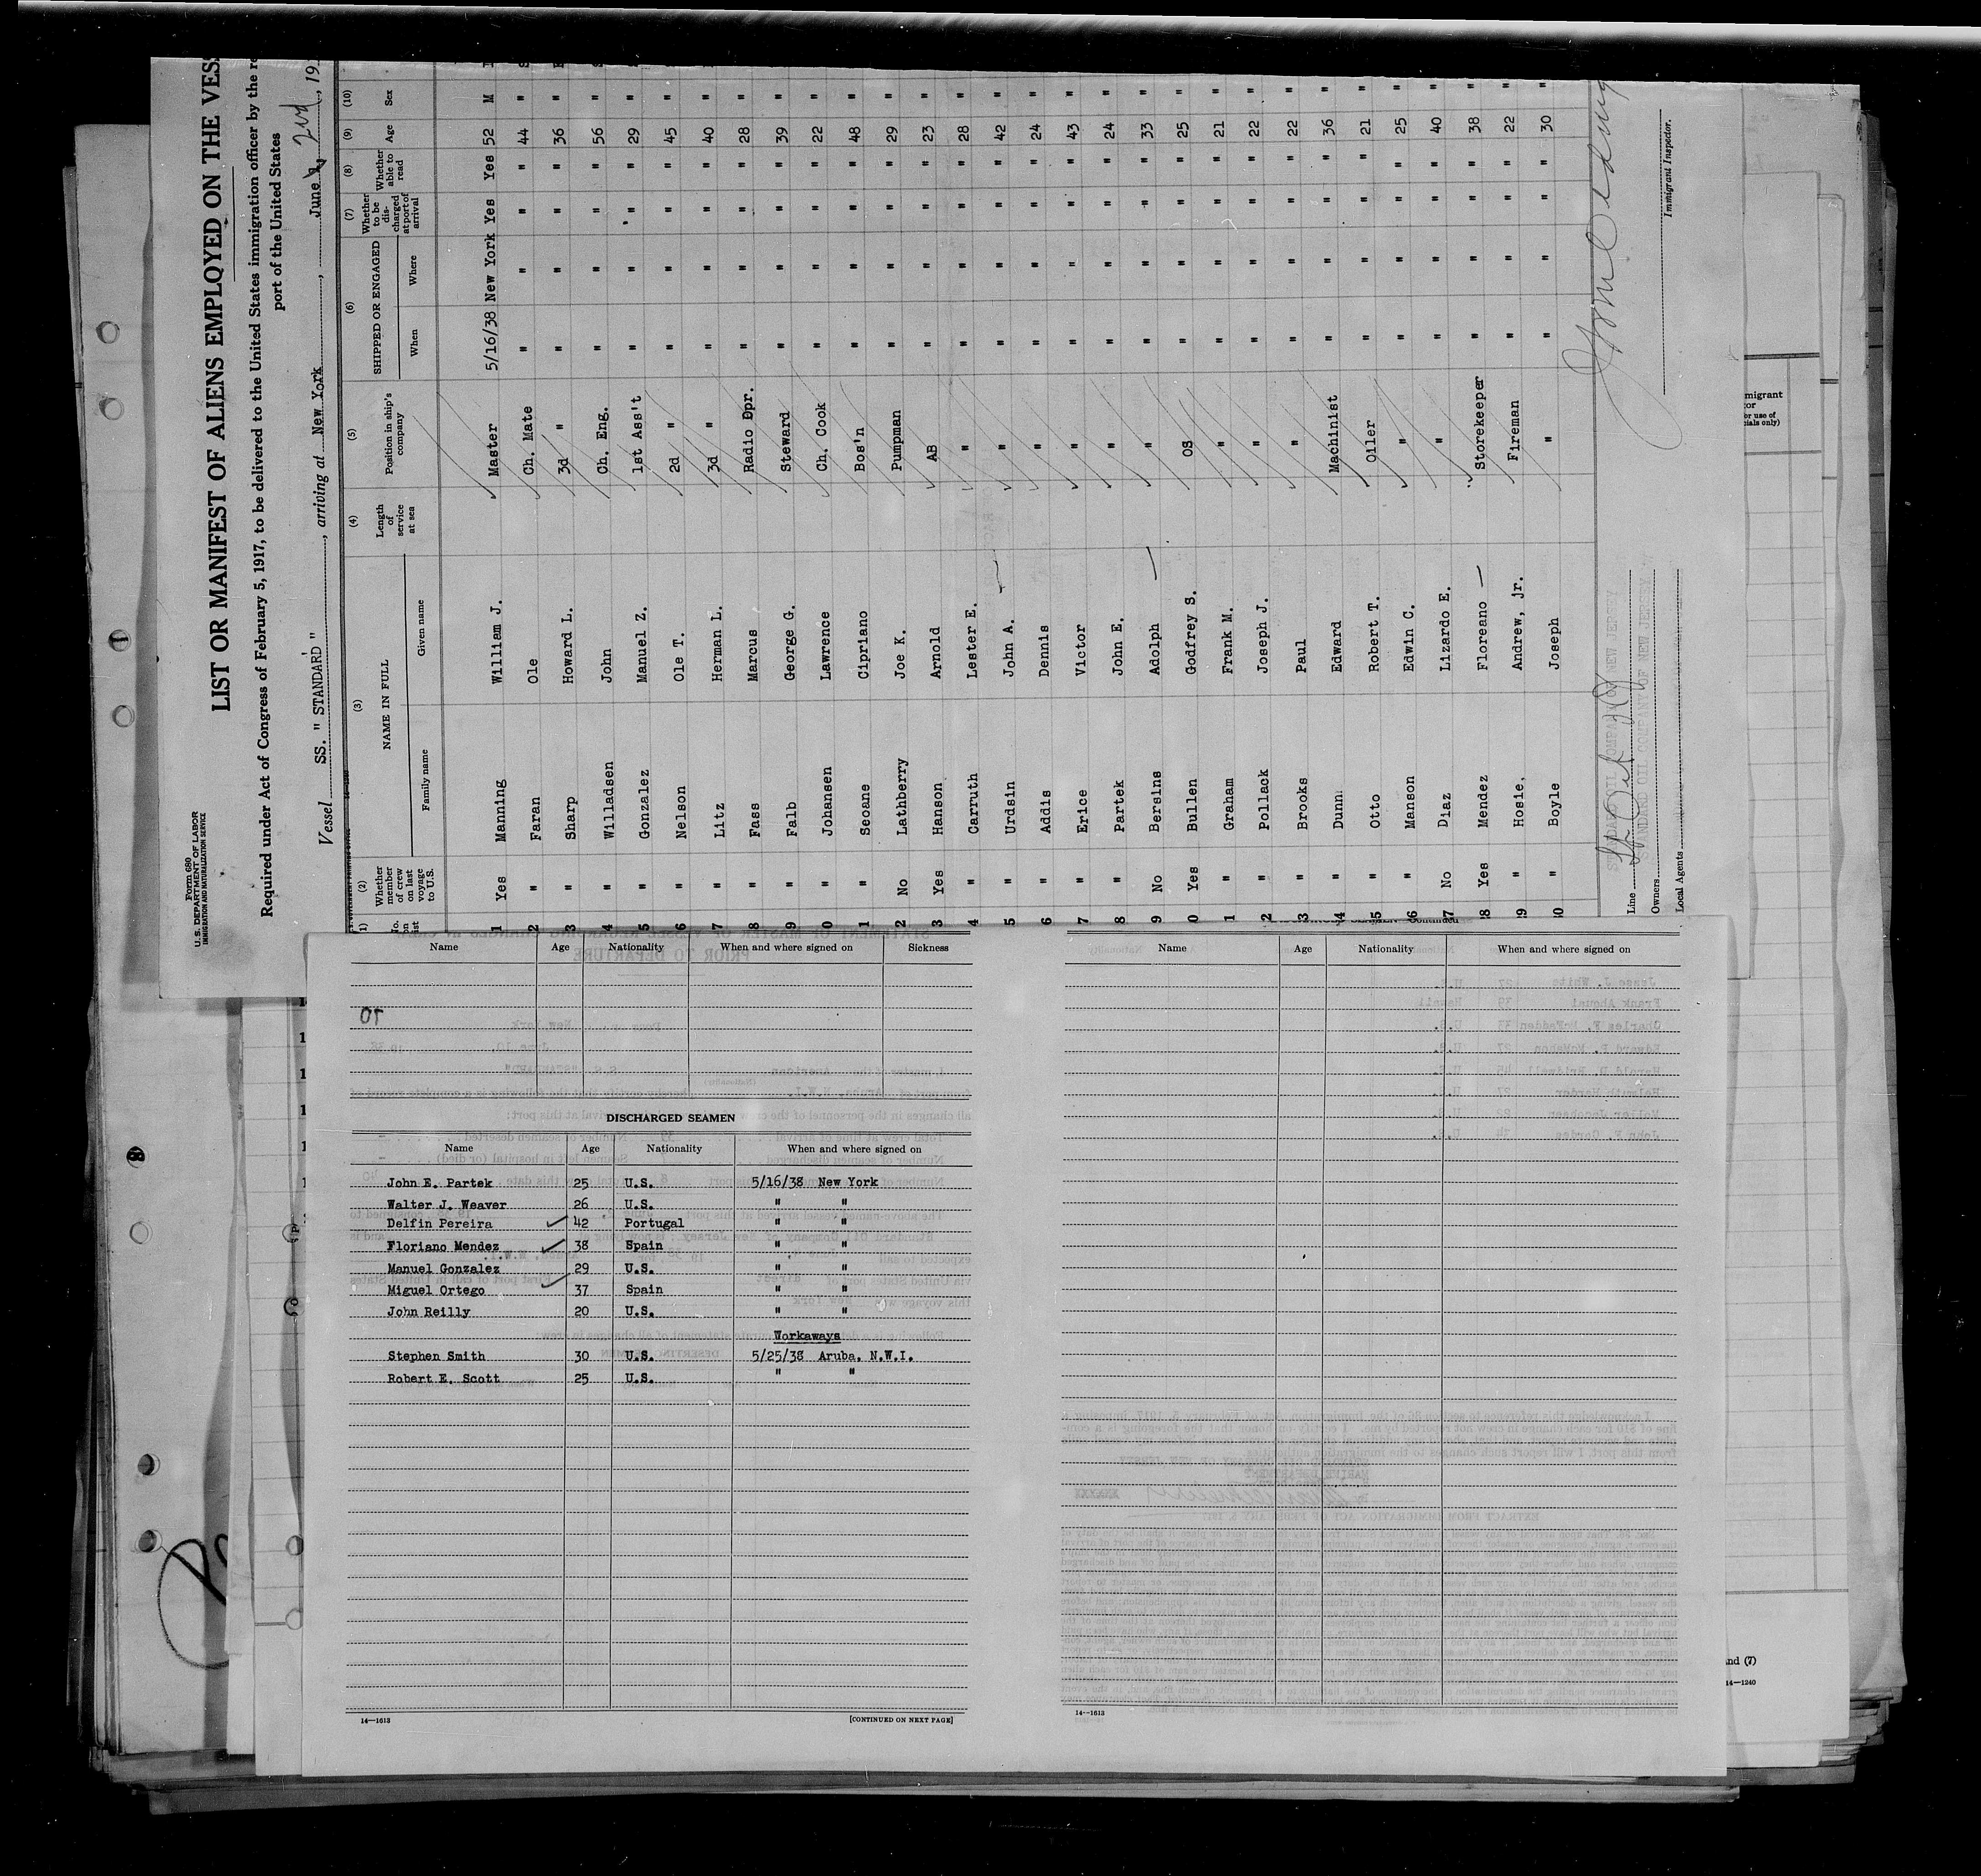 Form 680
U. S. DEPARTMENT OF LABOR
IMMIGRATION AND NATURALIZATION SERVICE
LIST OR MANIFEST OF ALIENS EMPLOYED ON THE VESS
Required under Act of Congress of February 5, 1917, to be delivered to the United States immigration officer by the re
port of the United States
Vessel SS. "STANDARD", arriving at New York, June 2nd, 19
(2) (3) (4) (5) (6) (7) (8) (9) (10)
Whether member of crew on last voyage to U.S. NAME IN FULL Family name Given name Length of service at sea Position in ship's company SHIPPED OR ENGAGED When Where Whether to be discharged at port of arrival Whether able to read Age Sex
1 Yes Manning William J. Master 5/16/38 New York Yes Yes 52 M
2 " Faran Ole Ch. Mate " " " " 44 "
3 " Sharp Howard L. 3d " " " " " 36 "
4 " Willadsen John Ch. Eng. " " " " 56 "
5 " Gonzalez Manuel Z. 1st Ass't " " " " 29 "
6 " Nelson Ole T. 2d " " " " " 45 "
7 " Litz Herman L. 3d " " " " " 40 "
8 " Fass Marcus Radio Opr. " " " " 28 "
9 " Falb George G. Steward " " " " 39 "
0 " Johansen Lawrence Ch. Cook " " " " 22 "
1 " Seoane Cipriano Bos'n " " " " 48 "
2 No Lathberry Joe K. Pumpman " " " " 29 "
3 Yes Hanson Arnold AB " " " " 23 "
4 " Carruth Lester E. " " " " " 28 "
5 " Urdsin John A. " " " " " 42 "
6 " Addis Dennis " " " " " 24 "
7 " Erice Victor " " " " " 43 "
8 " Partek John E. " " " " " 24 "
9 No Bersins Adolph " " " " " 33 "
0 Yes Bullen Godfrey S. OS " " " " 25 "
1 " Graham Frank M. " " " " " 21 "
2 " Pollack Joseph J. " " " " " 22 "
3 " Brooks Paul " " " " " 22 "
24 " Dunn Edward Machinist " " " " 36 "
25 " Otto Robert T. Oiler " " " " 21 "
26 " Manson Edwin C. " " " " " 25 "
27 No Diaz Lizardo E. " " " " " 40 "
28 Yes Mendez Floreano Storekeeper " " " " 38 "
29 " Hosie, Andrew, jr. Fireman " " " " 22 "
30 " Boyle Joseph " " " " " 30 "
Line St Oil NJ
Owners STANDARD OIL COMPANY OF NEW JERSEY
Local Agents
Immigrant Inspector.
Name Age Nationality When and where signed on Sickness
DISCHARGED SEAMEN
Name Age Nationality When and where signed on
John E. Partek 25 U.S. 5/16/38 New York
Walter J. Weaver 26 U.S. " "
Delfin Pereira 42 Portugal " "
Floriano Mendez 38 Spain " "
Manuel Gonzalez 29 U.S. " "
Miguel Ortego 37 Spain " "
John Reilly 20 U.S. " "
Workaways
Stephen Smith 30 U.S. 5/25/38 Aruba, N.W.I.
Robert E. Scott 25 U.S. " "
14—1613 [CONTINUED ON NEXT PAGE]
Name Age Nationality When and where signed on
14—1613
migrant
or
or use of
cials only)
nd (7)
14—1240